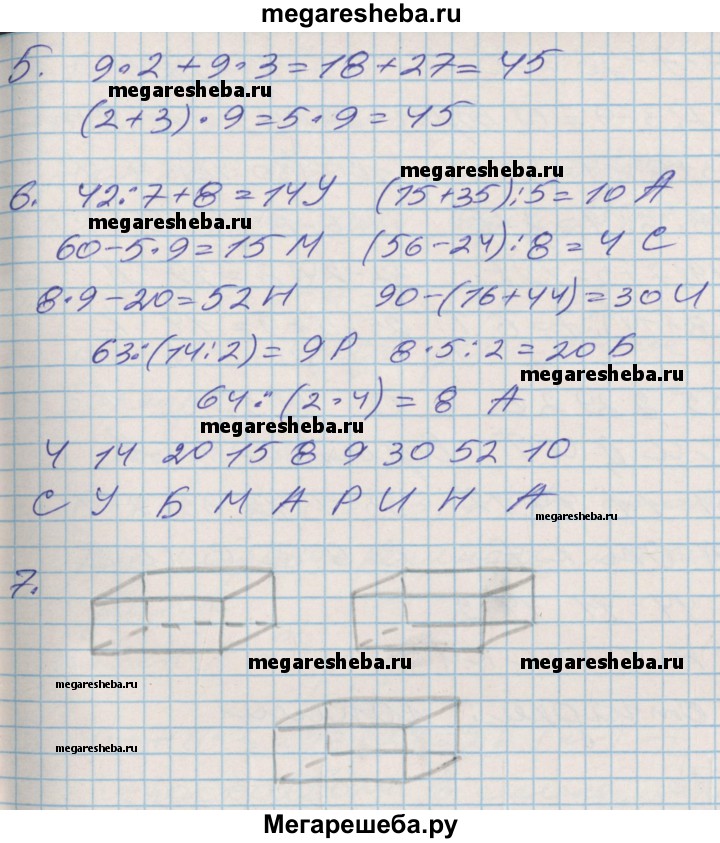 megaresheba.ru
5. 9·2+9·3=18+27=45
megaresheba.ru
(2+3)·9=5·9=45
megaresheba.ru
6. 42:7+8=14У (15+35):5=10 А
megaresheba.ru
60-5·9=15 М (56-24):8=4 С
8·9-20=52Н 90-(16+44)=30И
63:(14:2)=9Р 8·5:2=20Б
megaresheba.ru
64:(2·4)=8 А
megaresheba.ru
4 14 20 15 8 9 30 52 10
С У Б М А Р И Н А
megaresheba.ru
7.
megaresheba.ru megaresheba.ru
megaresheba.ru
megaresheba.ru
Мегарешеба.ру